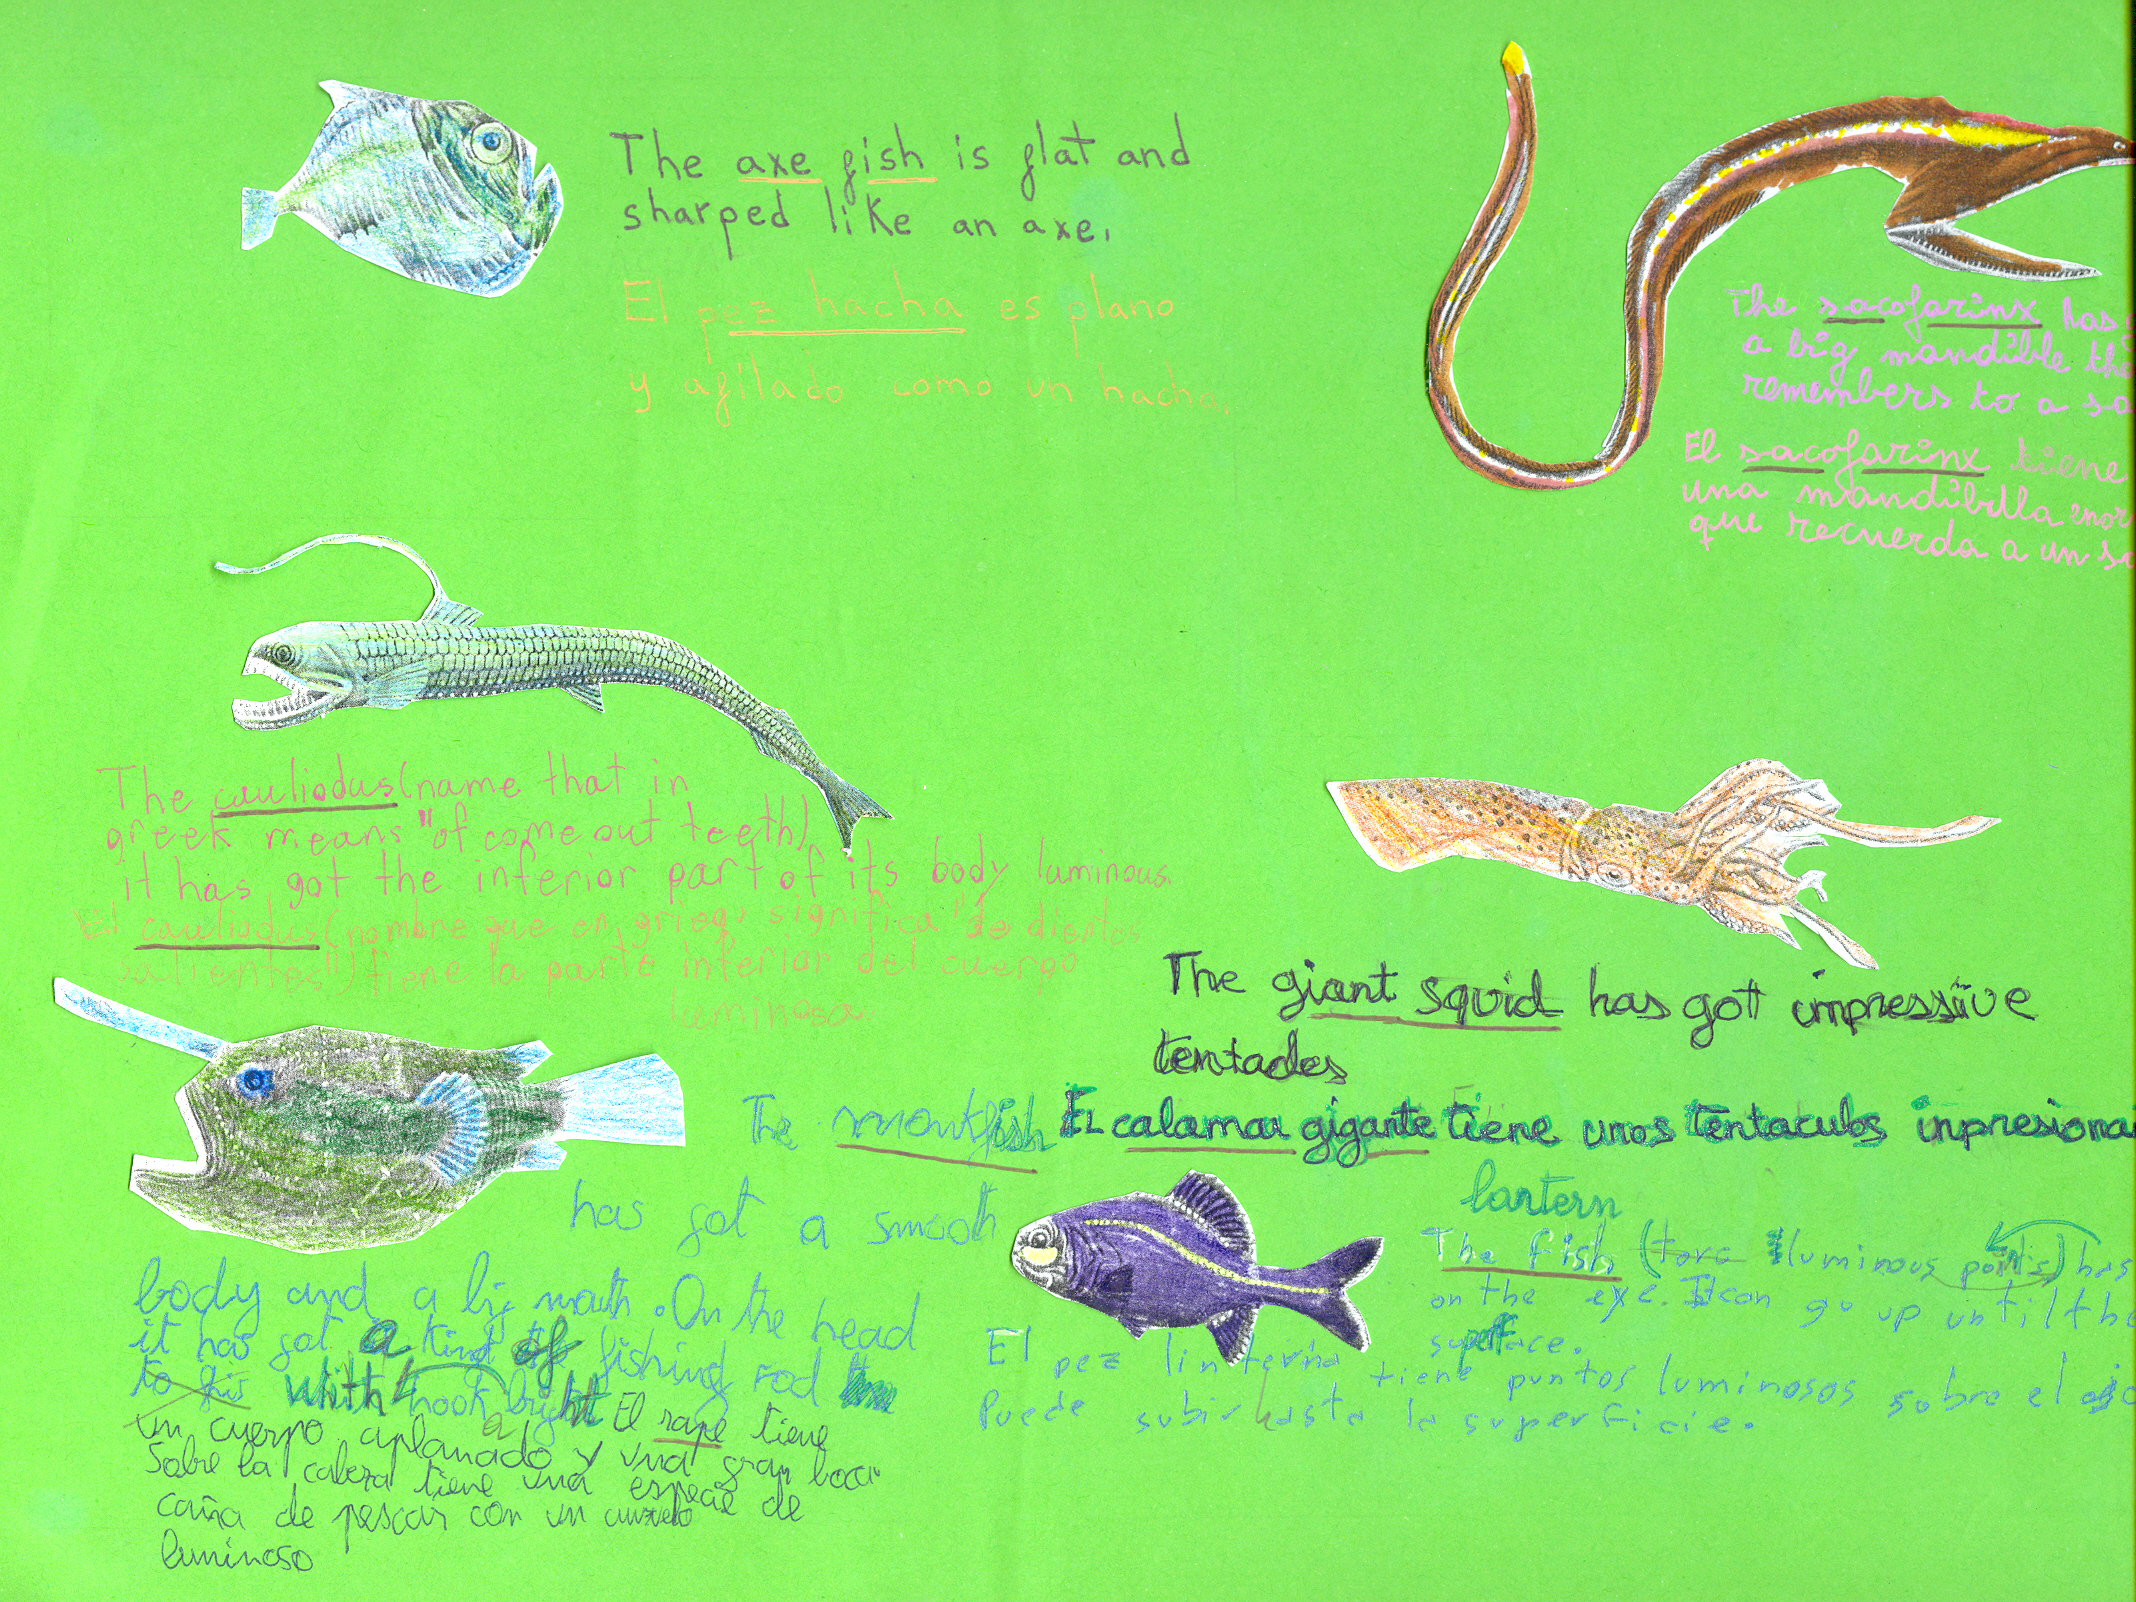 The axe fish is flat and
sharped like an axe.
El pez hacha es plano
y afilado como un hacha.
The sacofarinx has
a big mandible
remembers to a
El sacofarinx tiene
una mandibilla
que recuerda a un
The cauliodus (name that in
greek means "of come out teeth)
it has got the inferior part of its body luminous.
El cauliodus (nombre que en griego significa "de dientes
salientes") tiene la parte inferior del cuerpo
luminosa.
The giant squid has got impressive
tentacles
EL calamar gigante tiene unos tentaculos
The monkfish
has got a smooth
body and a big mouth. On the head
it has got a kind of fishing rod
with hook bright
a
El rape tiene
un cuerpo aplanado y una gran boca
sobre la cabeza tiene una especie de
caña de pescar con un anzuelo
luminoso
lantern
The fish luminous points) has
on the eye. It can go up until the
surface.
El pez linterna tiene puntos luminosos sobre el ojo
Puede subir hasta la superficie.